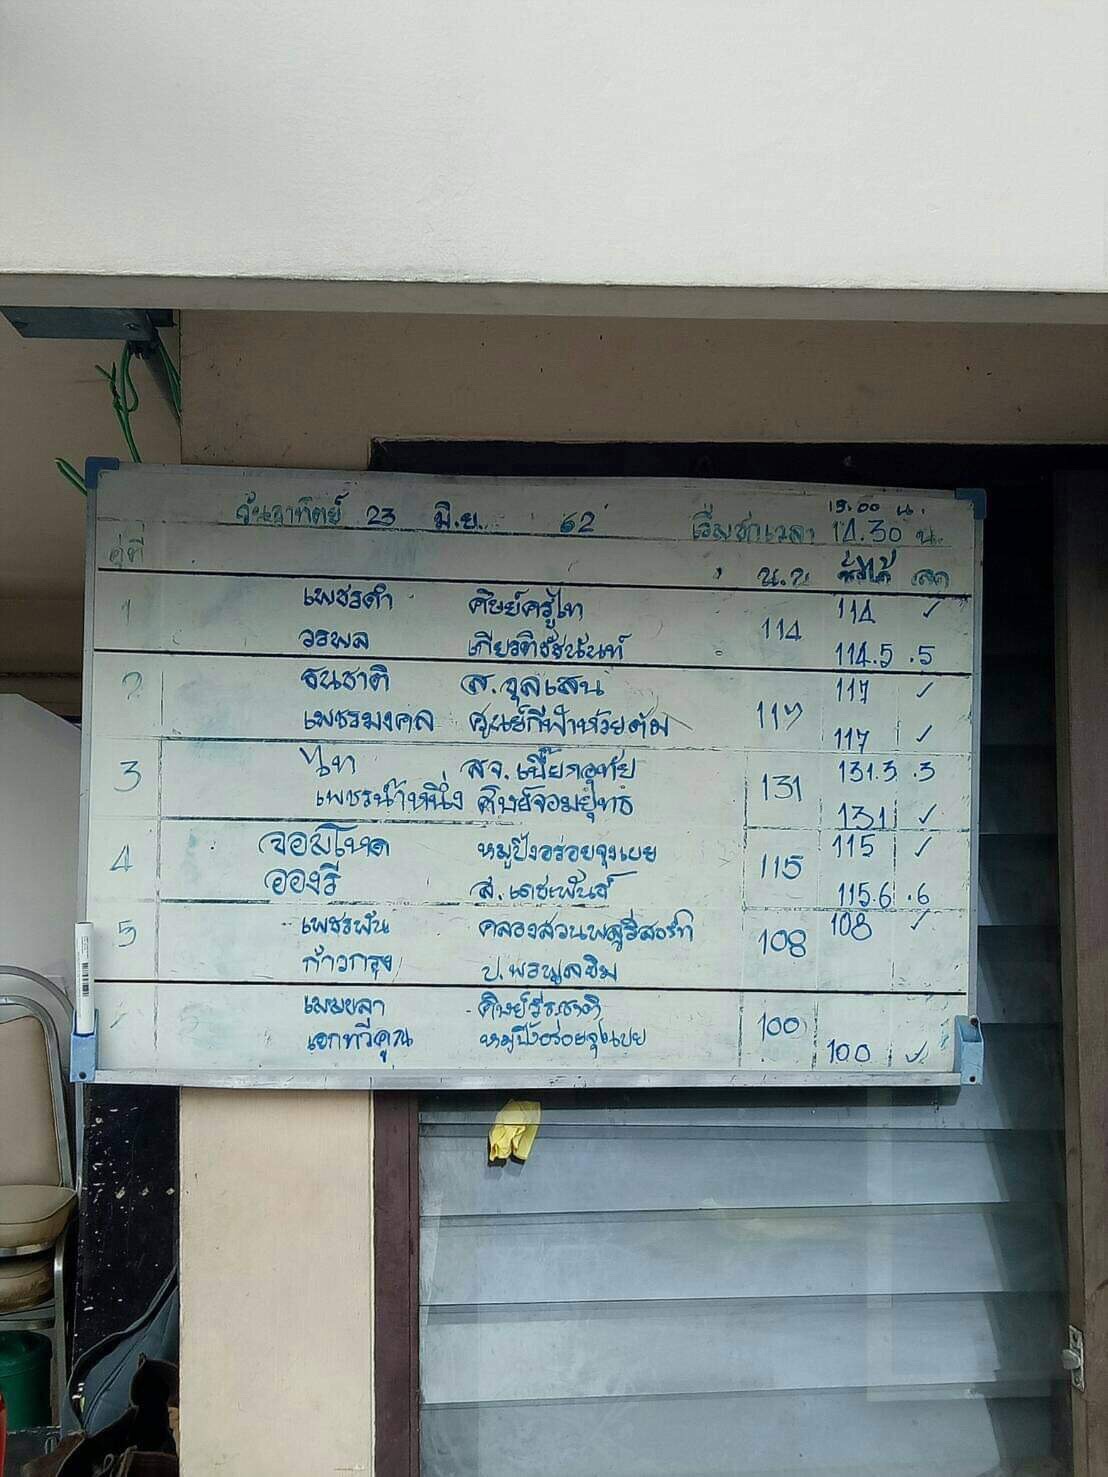 วันอาทิตย์ 23 มิ.ย. 62 เริ่มชกเวลา 14.30 น.
15.00 น.
คู่ที่ น.น ชั่งได้ ลด
1 เพชรดำ ศิษย์ครูไท 114 114 ✓
วรพล เกียรติชัชนันท์ 114.5 .5
2 ธนชาติ ส.จุลเสน 117 117 ✓
เพชรมงคล ศูนย์กีฬาห้วยต้ม 117 ✓
3 ไท สจ.เปี๊ยกอุทัย 131 131.3 .3
เพชรน้ำหนึ่ง ศิษย์จอมยุทธ 131 ✓
4 จอมโหด หมูปิ้งอร่อยจุงเบย 115 115 ✓
อองรี ส.เดชะพันธ์ 115.6 .6
5 เพชรพัน คลองสวนพลูรีสอร์ท 108 108 ✓
ก้าวกรุง
เมฆขลา 100
เอกทวีคูณ หมูปิ้งอร่อยจุงเบย 100 ✓